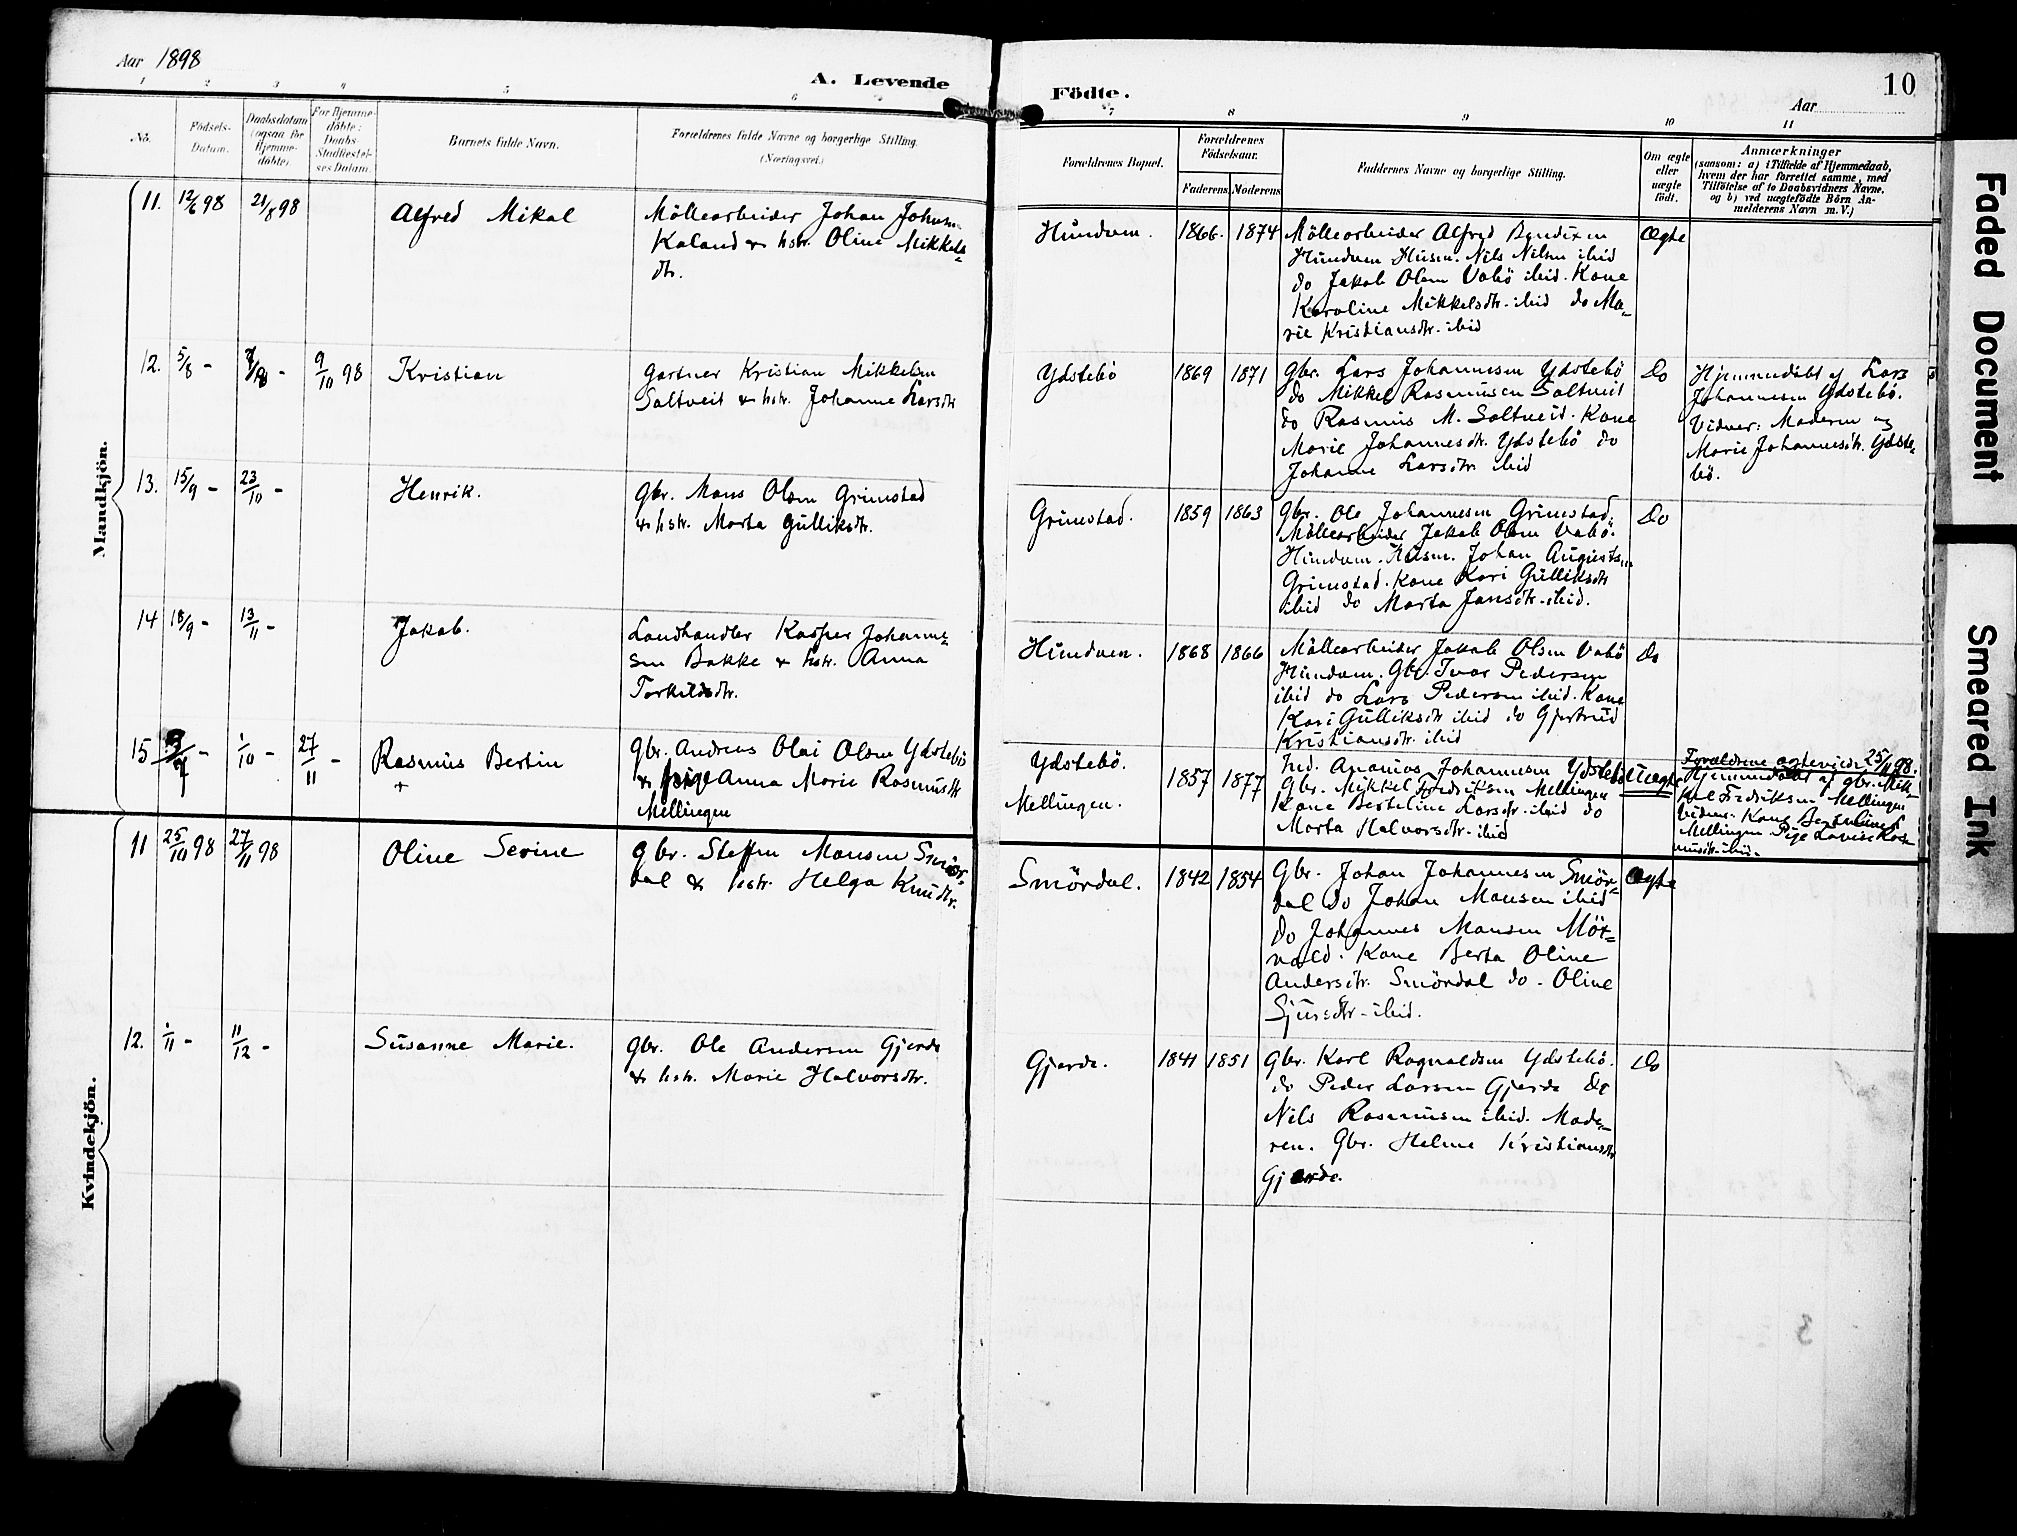 Aar 1898
A. Levende
Födte.
10
Aar
1 2 3 4 5 6 7 8 9 10 11
No.
Födsels-
Datum.
Daabsdatum
(ogsaa for
Hjemme-
döbte).
For Hjemme-
döbte:
Daabs-
Stadfæstel-
ses Datum.
Barnets fulde Navn.
Forældrenes fulde Navne og borgerlige Stilling.
(Næringsvei.)
Forældrenes Bopæl.
Forældrenes
Födselsaar.
Faderens. Moderens.
Faddernes Navne og borgerlige Stilling.
Om ægte
eller
uægte
födt.
Anmærkninger
(saasom: a) i Tilfælde af Hjemmedaab,
hvem der har forrettet samme, med
Tilföielse af to Daabsvidners Navne,
og b) ved uægtefödte Börn An-
melderens Navn m. V.)
Mandkjön.
11. 12/6 98 21/8 98
Alfred Mikal
Möllearbeider Johan Johans.
Kaland & hstr. Oline Mikkels-
dtr.
Hundven.
1866. 1874
Möllearbeider Alfred Bendixen
Hundven Husm. Nils Nilsen ibid
do Jakob Olsen Vabö ibid. Kone
Karoline Mikkelsdtr. ibid do Ma-
rie Kristiansdtr. ibid
Ægte
12. 5/8 - 7/8 - 9/10 98
Kristian
Gartner Kristian Mikkelsen
Saltveit & hstr. Johanne Larsdtr
Ydstebö
1869 1871
Gbr. Lars Johannesen Ydstebö
do Mikkel Rasmusen Saltveit
do Rasmus M. Saltveit. Kone
Marie Johannesdtr. Ydstebö do
Johanne Larsdtr ibid
Do
Hjemmedöbt af Lars
Johannesen Ydstebö.
Vidner: Moderen og
Marie Johannesdtr. Ydste-
bö.
13. 15/9 - 23/10 -
Henrik.
Gbr. Mons Olsen Grimstad
& hstr. Marta Gulliksdtr.
Grimstad.
1859 1863
Gbr. Ole Johannesen Grimstad.
Möllearbeider Jakob Olsen Vabö.
Hundven. Husm. Johan Augustsen
Grimstad. Kone Kari Gulliksdtr
ibid do Marta Jansdtr. ibid.
Do
14 18/9 - 13/11 -
Jakob.
Landhandler Kasper Johanne-
sen Bakke & hstr. Anna
Torkildsdtr.
Hundven.
1868 1866
Möllearbeider Jakob Olsen Vabö
Hundven. Gbr. Ivar Pedersen
ibid do Lars Pedersen ibid. Kone
Kari Gulliksdtr ibid do Gjertrud
Kristiansdtr. ibid
Do
15 9/7 - 1/10 - 27/11 -
Rasmus Bertin
+
Gbr. Andreas Olai Olsen Ydstebö
& Pige Anna Marie Rasmusdtr
Mellingen
Ydstebö.
Mellingen.
1857 1877
Ind. Ananias Johannesen Ydstebö
Gbr. Mikkel Fredriksen Mellingen
Kone Berteline Larsdtr. ibid do
Marta Halvorsdtr. ibid
Uægte
Forældrene ægteviede 25/11 98.
Hjemmedöbt af gbr. Mik-
kel Fredriksen Mellingen
Vidner: Kone Berteline L.
Mellingen Pige Lovise Ras-
musdtr. ibid.
Kvindekjön.
11 25/10 98 27/11 98
Oline Serine
Gbr. Steffen Monsen Smör-
dal & hstr. Helga Knudtr.
Smördal.
1842 1854
Gbr. Johan Johannesen Smör-
dal do Johan Monsen ibid
do Johannes Monsen Mör-
vald. Kone Berta Oline
Andersdtr. Smördal do. Oline
Sjursdtr. ibid.
Ægte
12. 1/11 - 11/12 -
Susanne Marie.
Gbr. Ole Andersen Gjerde
& hstr. Marie Halvorsdtr.
Gjerde.
1841 1851
Gbr. Karl Ragnaldsen Ydstebö.
do Peder Larsen Gjerde do
Nils Rasmusen ibid. Mode-
ren. Gbr. Helene Kristiansdtr
Gjerde.
Do
Faded Document
Smeared Ink